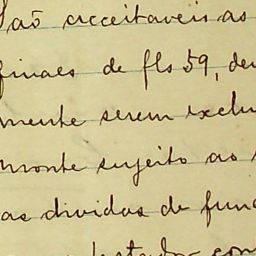 Saõ acceitaveis as
finaes de fls 59, de
mente serem exclu
monte sujeito ao
as dividas de fun
testador con